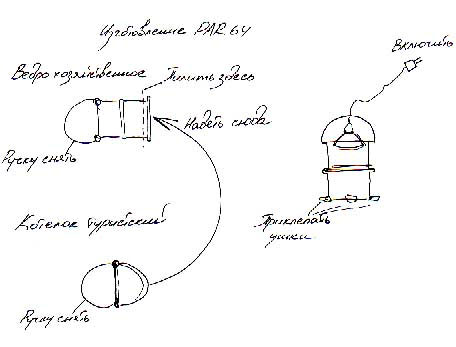 Изготовление PAR 64
Включить
Ведро хозяйственное
Пилить здесь
Надеть сюда
Ручку снять
Котелок туристский
Приклепать
ушки
Ручку снять